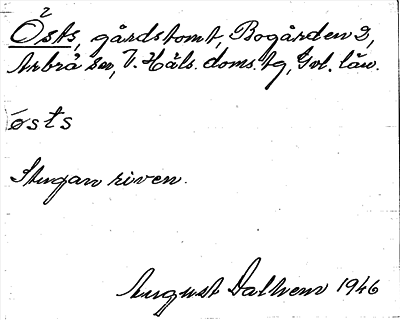 Östs, gårdstomt, Bogården 2,
Arbrå sn, V. Häls. doms. tg, Gvl. län.
østs
Stugan riven.
August Dalhem 1946